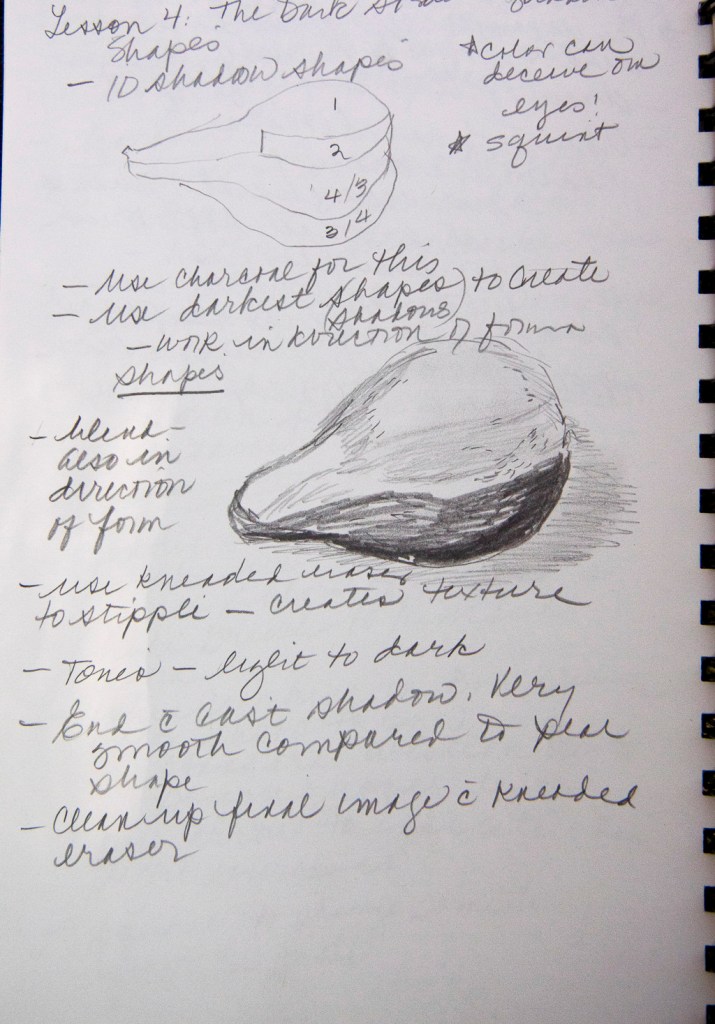 Lesson 4: The Dark
Shapes
- ID shadow shapes
* Color can
deceive our
eyes!
* squint
1
2
4/3
3/4
- Use charcoal for this
- Use darkest shapes to create
(shadows)
- work in direction of form
shapes
- blend -
also in
direction
of form
- use kneaded eraser
to stipple - creates texture
- Tones - light to dark
- End c̄ cast shadow. Very
smooth compared to pear
shape
- Clean up final image c̄ kneaded
eraser